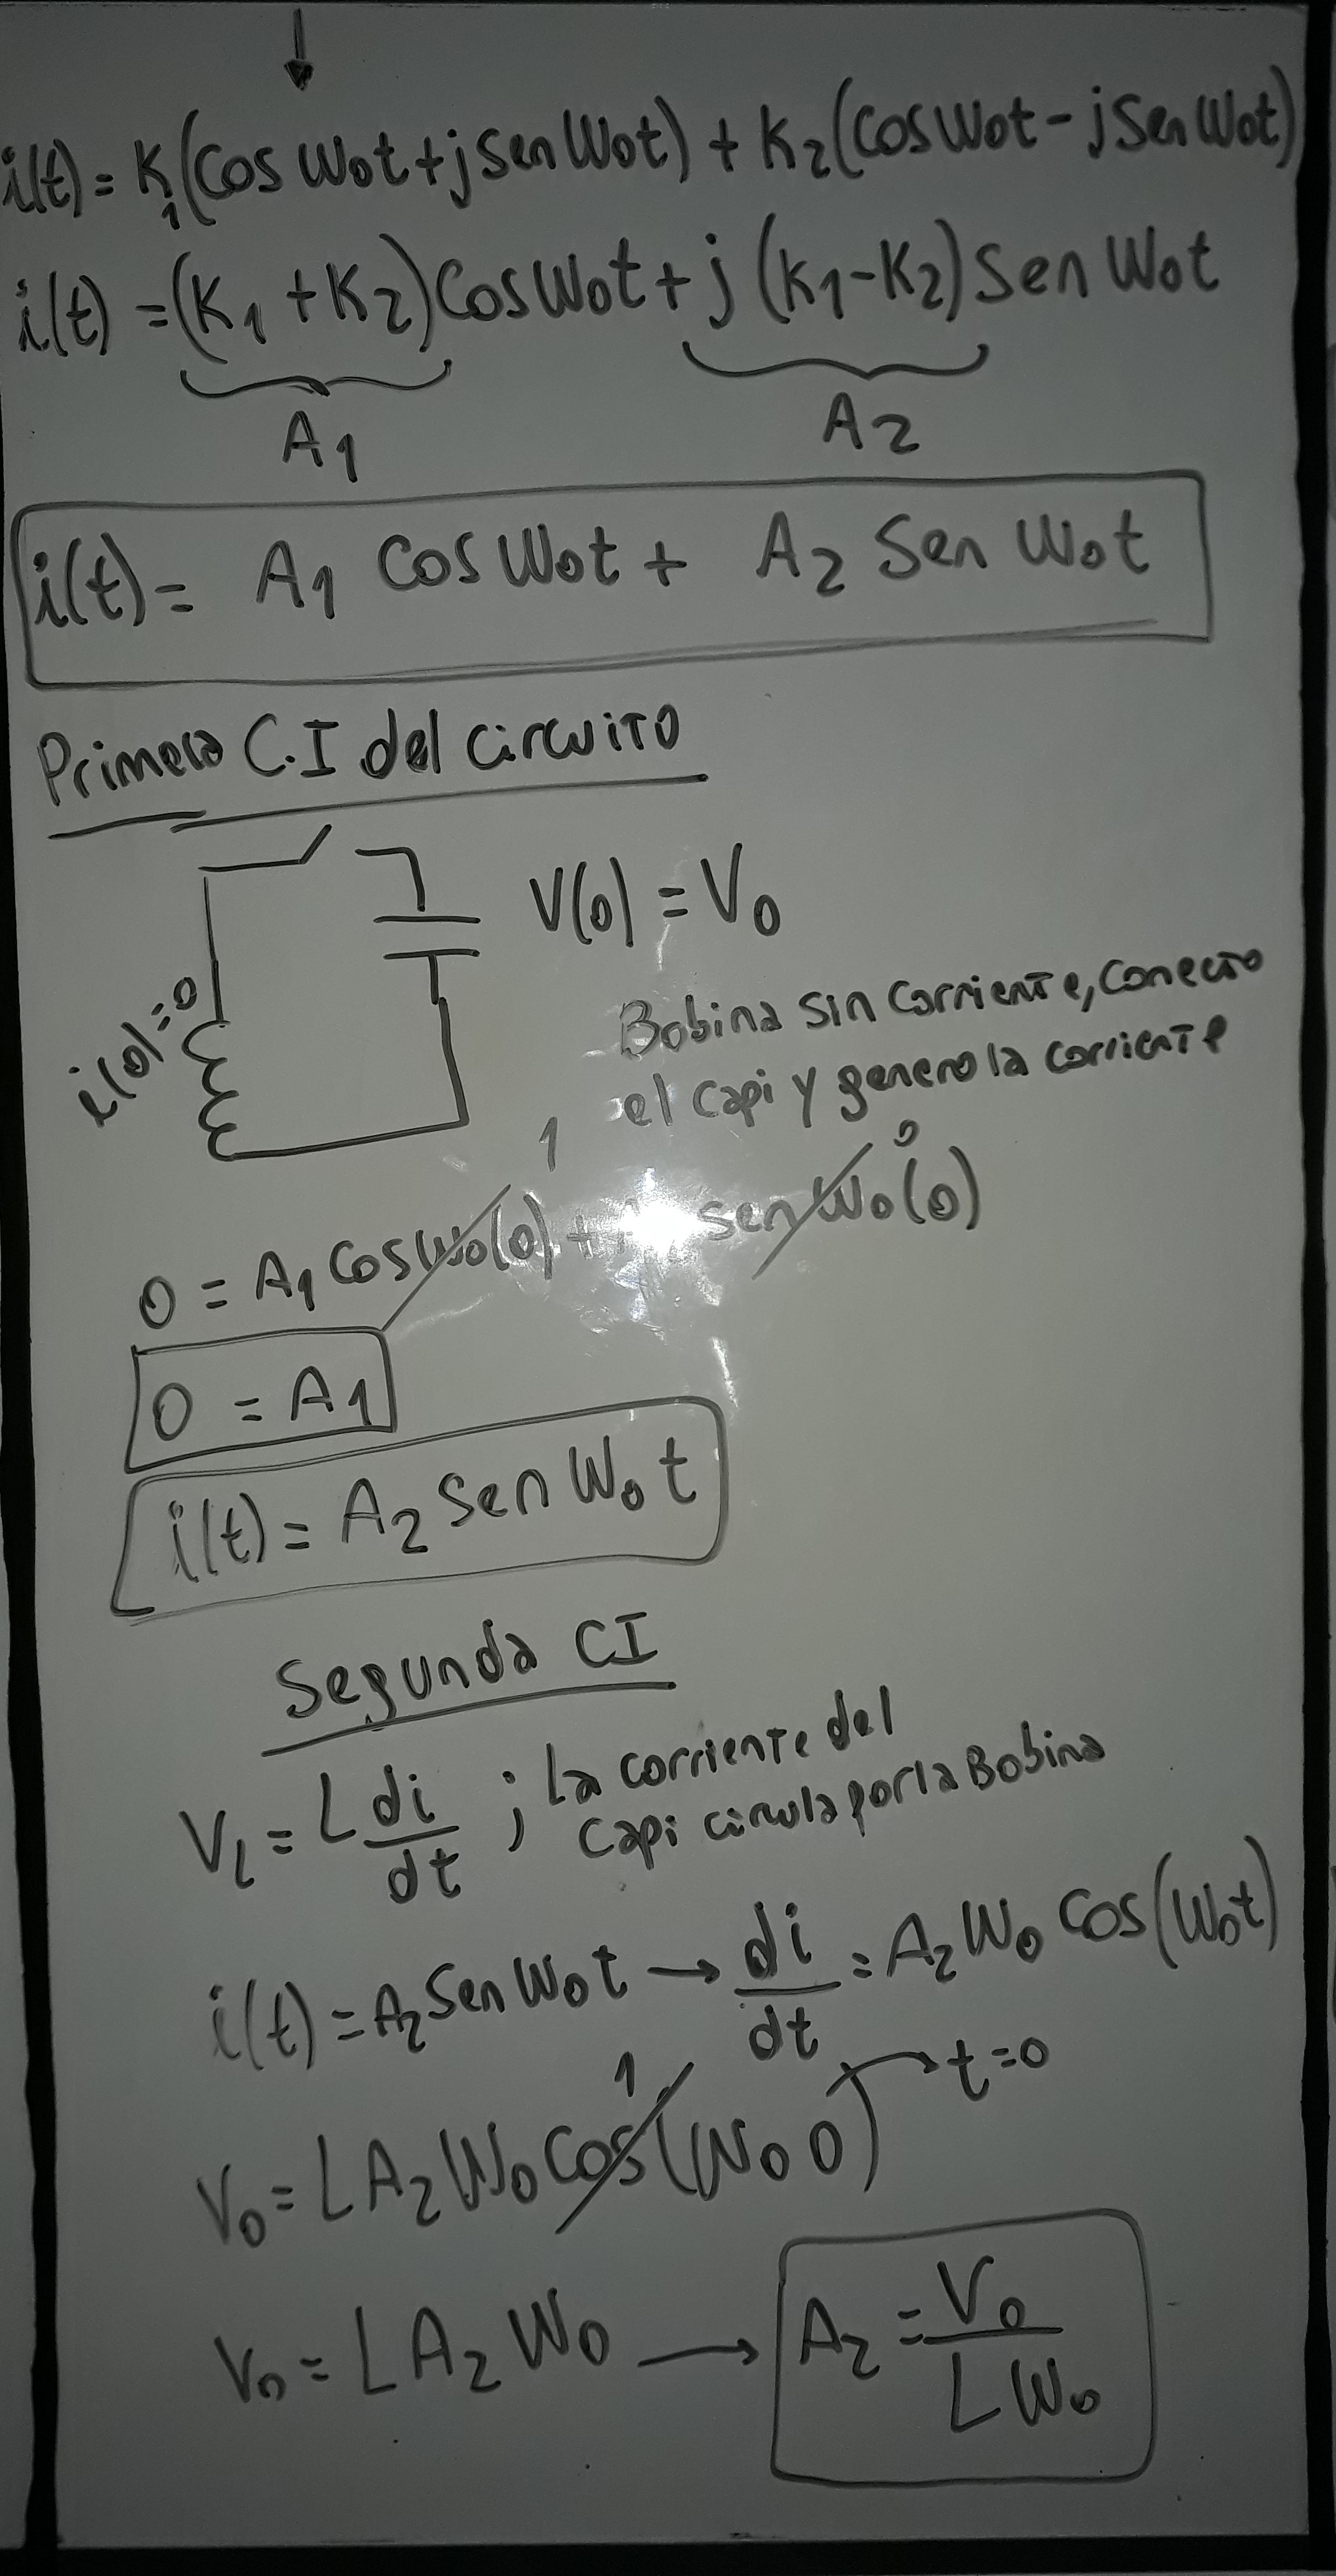 i(t) = K₁(Cos Wot + j Sen Wot) + K₂(Cos Wot - j Sen Wot)
i(t) = (K₁ + K₂) Cos Wot + j (K₁ - K₂) Sen Wot
A₁ A₂
i(t) = A₁ Cos Wot + A₂ Sen Wot
Primera C.I del circuito
V(0) = V₀
i(0) = 0
Bobina sin Corriente, Conecto
el Capi y genero la corriente
1 0
0 = A₁ Cos W₀(0) + sen W₀(0)
0 = A₁
i(t) = A₂ Sen W₀t
Segunda CI
V_L = L di/dt ; La corriente del
Capi circula por la Bobina
i(t) = A₂ Sen Wot → di/dt = A₂ W₀ Cos(W₀t)
1 t=0
V₀ = L A₂ W₀ Cos(W₀ 0)
V₀ = L A₂ W₀ → A₂ = V₀/L W₀